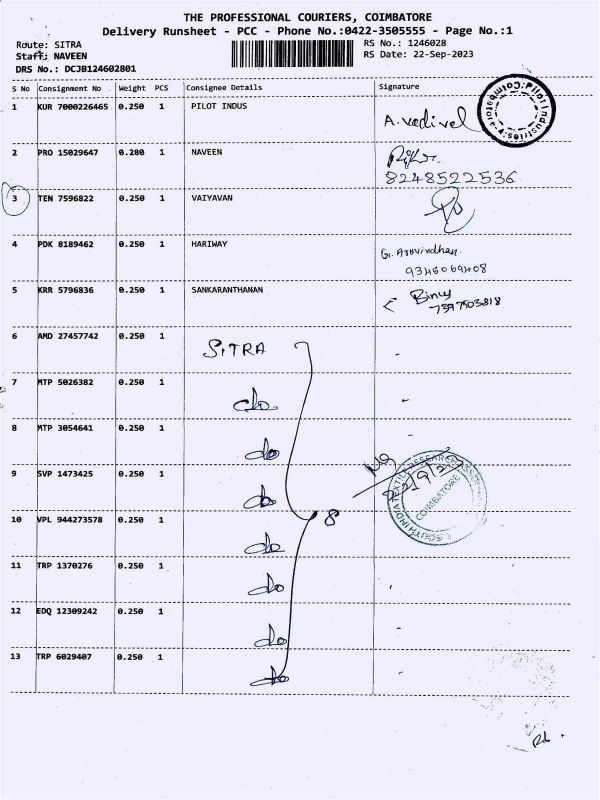 THE PROFESSIONAL COURIERS, COIMBATORE
Delivery Runsheet - PCC - Phone No.:0422-3505555 - Page No.:1
Route: SITRA
RS No.: 1246028
Staff: NAVEEN
RS Date: 22-Sep-2023
DRS No.: DCJB124602801
S No Consignment No Weight PCS Consignee Details Signature
1 KUR 7000226465 0.250 1 PILOT INDUS A. Vadivel
2 PRO 15029647 0.280 1 NAVEEN
8248522536
3 TEN 7596822 0.250 1 VAIYAVAN
4 PDK 8189462 0.250 1 HARIWAY G. Aravindhan
9345069408
5 KRR 5796836 0.250 1 SANKARANTHANAN
6 AMD 27457742 0.250 1 SITRA
7 MTP 5026382 0.250 1 do
8 MTP 3054641 0.250 1 do
9 SVP 1473425 0.250 1 do
10 VPL 944273578 0.250 1 do
8
11 TRP 1370276 0.250 1 do
12 EDQ 12309242 0.250 1 do
13 TRP 6029407 0.250 1 do
22/9/23
COIMBATORE